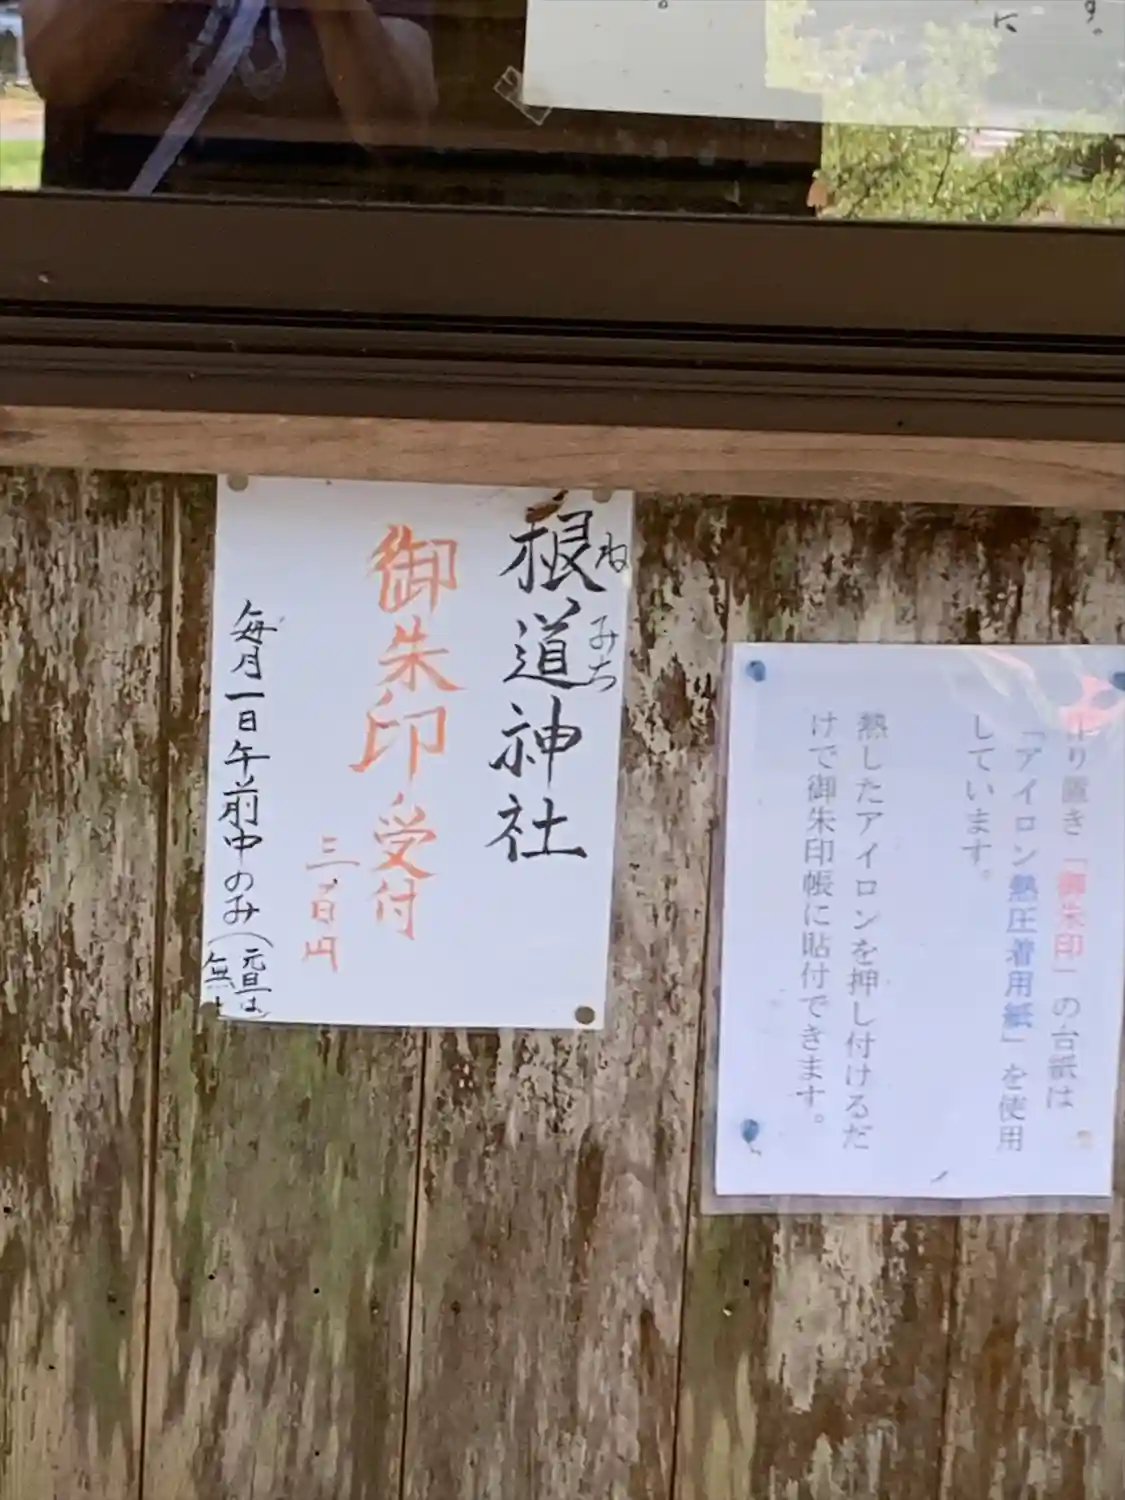 す。
に
。
根道神社
ねみち
御朱印受付
三百円
毎月一日午前中のみ(元旦は
無し
作り置き「御朱印」の台紙は
「アイロン熱圧着用紙」を使用
しています。
熱したアイロンを押し付けるだ
けで御朱印帳に貼付できます。